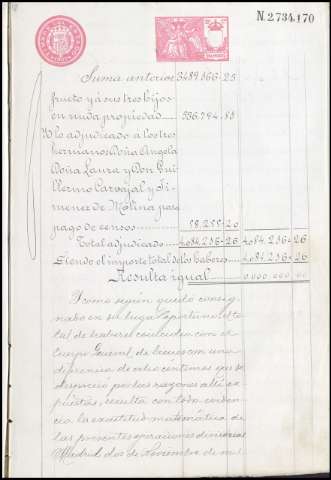 N.2734,170
Suma anterior 3489.566-25
fructo y á sus tres hijos
en nuda propiedad 536.794-85
Y lo adjudicado a los tres
hermanos Doña Angela
Doña Laura y Don Gui
llermo Carvajal y Ji-
menez de Molina para
pago de censos 20
Total adjudicado 4.084.256-26 4.084.256-26
Siendo el importe total de los haberes 4.084.256-26
Resulta igual 0.000.000-00
Y como según quedó consig
nado en su lugar oportuno el to
tal de haberes coincide con el
Cuerpo General de bienes con una
diferencia de céntimos que se
despreció por las razones allí ex
puestas, resulta con toda eviden
cia, la exactitud matemática de
las presentes operaciones divisorias
Madrid dos de Noviembre de mil